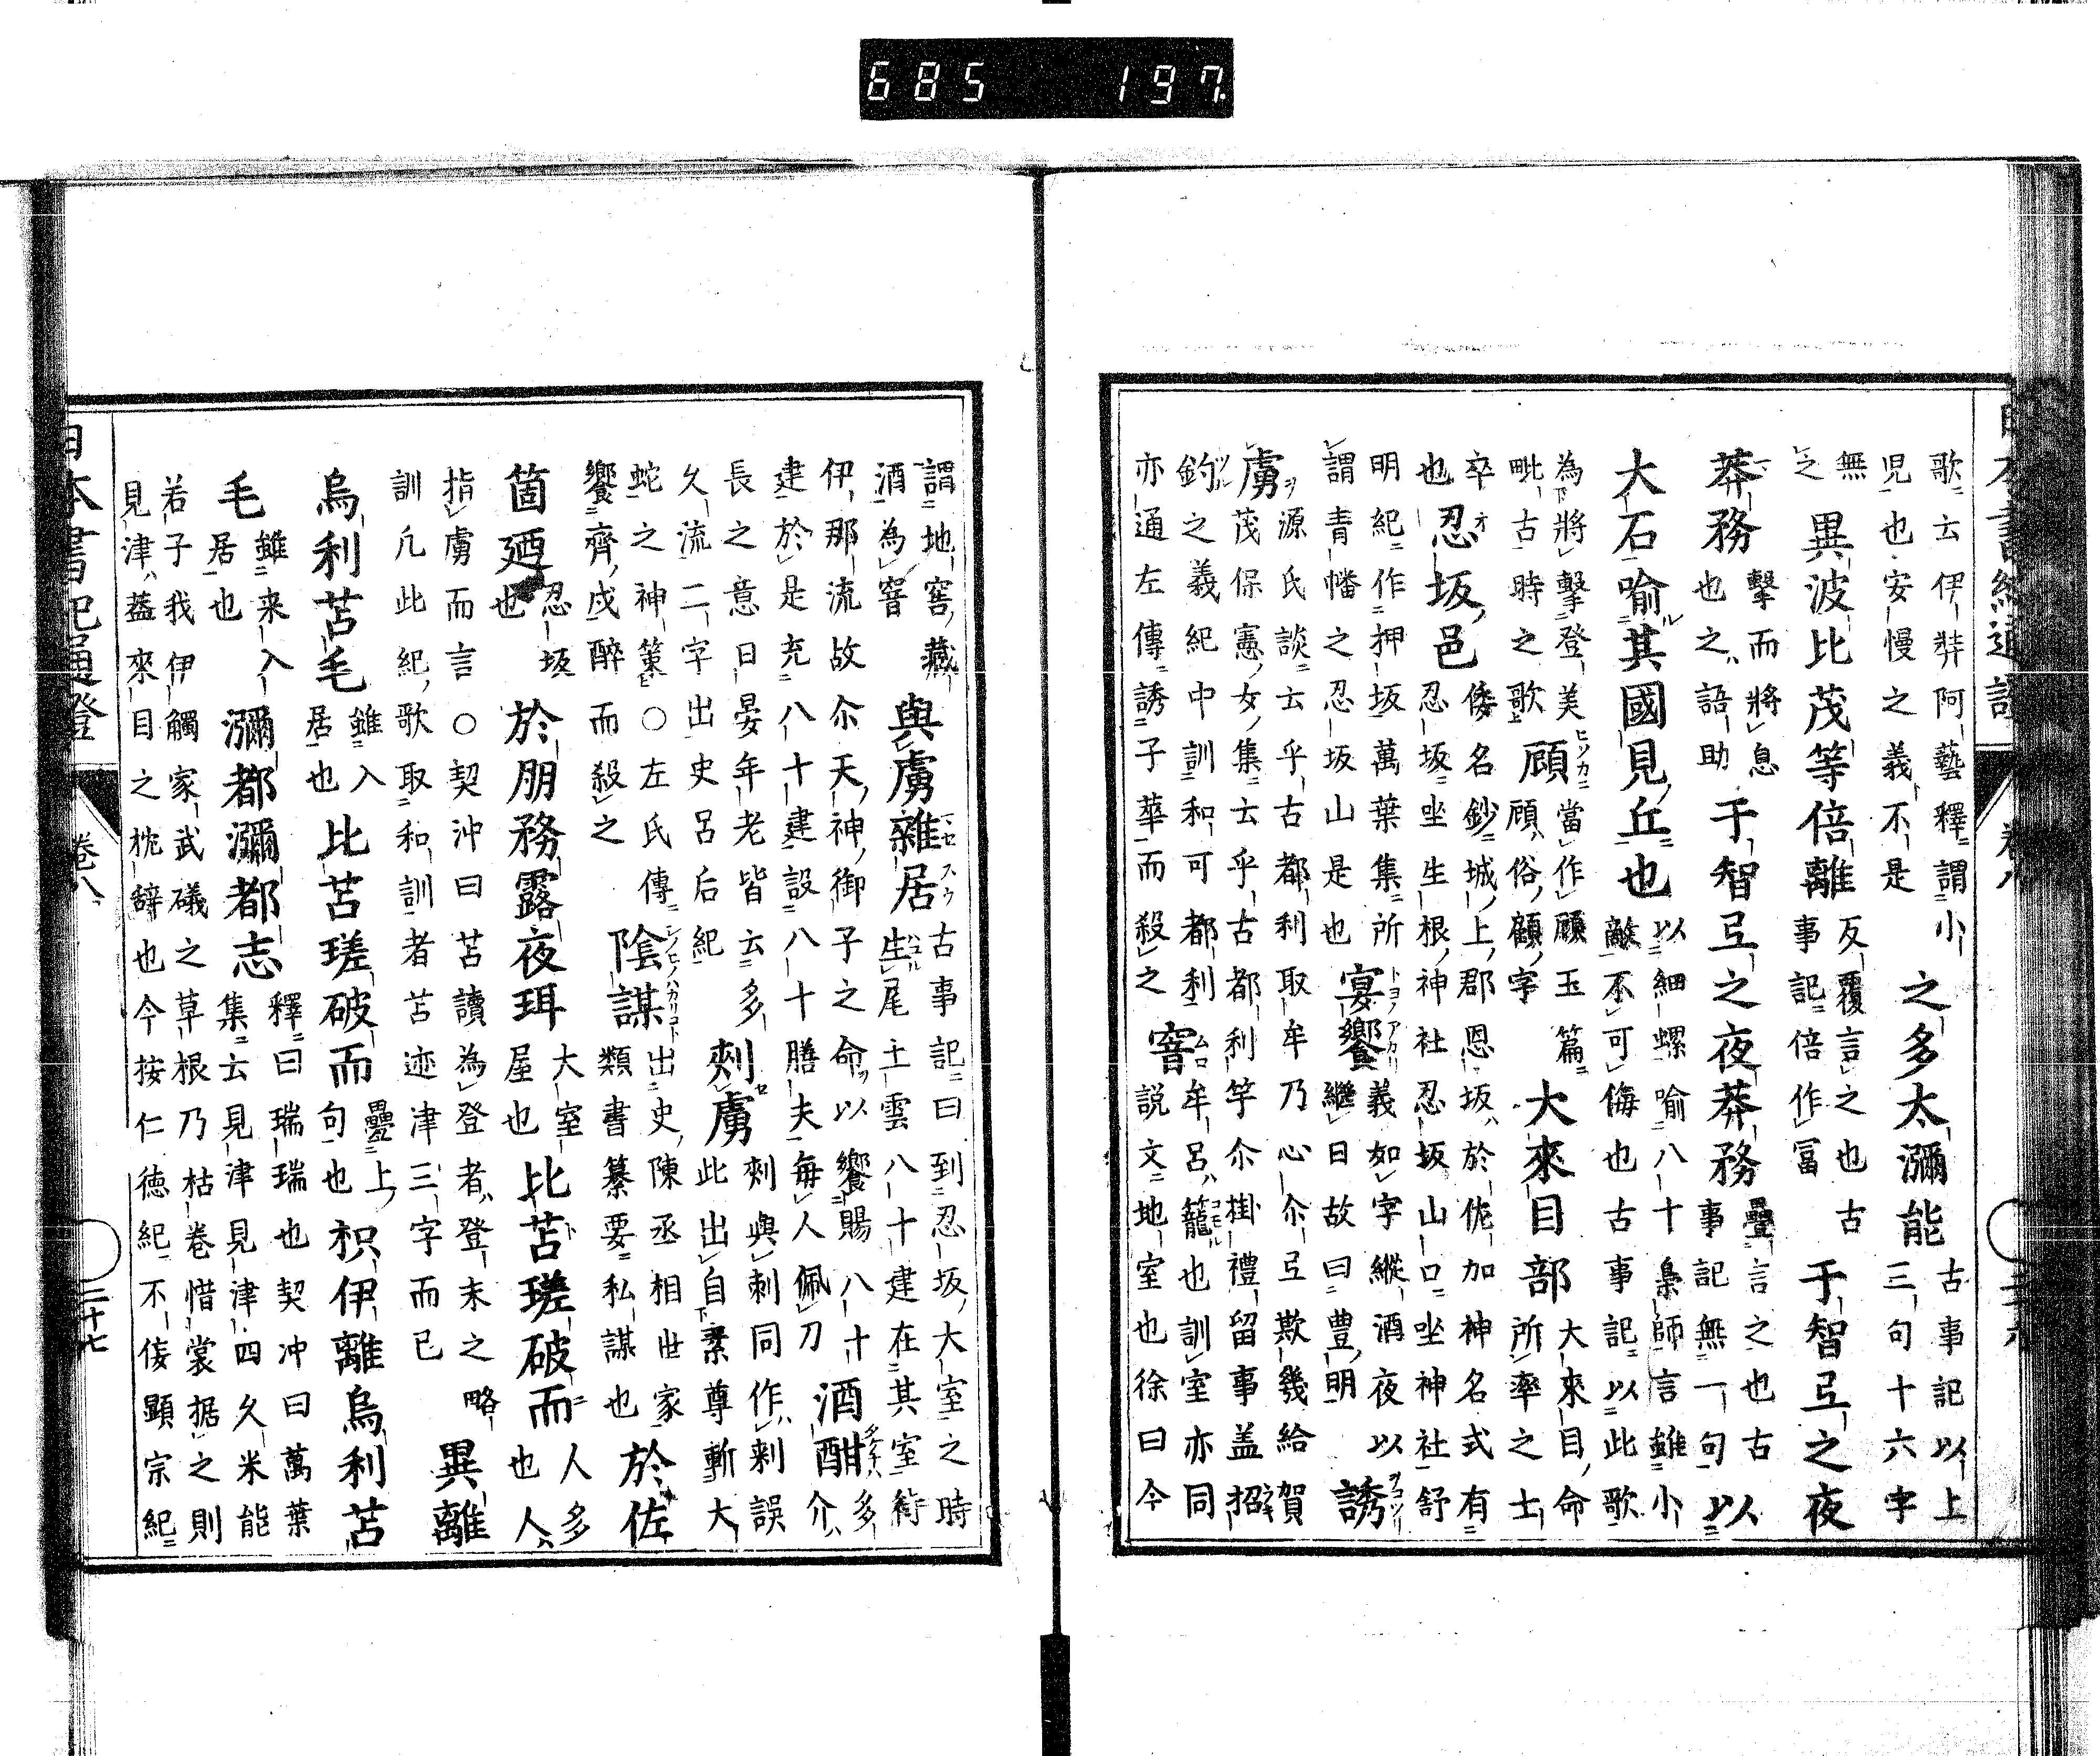 歌云伊弉阿藝釋謂小
兒也安慢之義不是
之多太瀰能
古事記以上
三句十六字
無
之
異波比茂等倍離
反覆言之也古
事記倍作冨
于智弖之夜
莽務
擊而將息
也之語助
于智弖之夜莽務
疊言之也古
事記無一句
以
大石喻其國見丘也
以細螺喻八十梟師言雖小
敵不可侮也古事記以此歌
為將擊登美
毗古時之歌
顧
當作顧玉篇
顧俗顧字
大來目部
大來目命
所率之士
卒
也
忍坂邑
倭名鈔城上郡恩坂於佐加神名式有
忍坂坐生根神社忍坂山口坐神社舒
明紀作押坂萬葉集所
謂青幡之忍坂山是也
宴饗
義如字縱酒夜以
繼日故曰豊明
誘
虜
源氏談云乎古都利取牟乃心尒弖欺幾給賀
茂保憲女集云乎古都利竿尒掛禮留事盖招
鉤之義紀中訓和可都利
亦通左傳誘子華而殺之
窨
牟呂籠也訓室亦同
説文地室也徐曰今
日本書紀通證
卷八
謂地窖藏
酒為窨
與虜雜居
古事記曰到忍坂大室之時
生尾土雲八十建在其室待
伊那流故尒天神御子之命以饗賜八十
建於是充八十建設八十膳夫每人佩刀
酒酣
多
介
長之意日晏年老皆云多
久流二字出史呂后紀
刺虜
刺與刺同作剌誤
此出自素尊斬大
蛇之神策○左氏傳
饗齊戍醉而殺之
陰謀
出史陳丞相世家
類書纂要私謀也
於佐
箇廼
忍坂
也
於朋務露夜珥
大室
屋也
比苫瑳破而
人多
也人
指虜而言○契沖曰苫讀為登者登末之略
訓凢此紀歌取和訓者苫迹津三字而已
異離
烏利苫毛
雖入
居也
比苫瑳破而
疊上
句也
枳伊離烏利苫
毛
雖来入
居也
瀰都瀰都志
釋曰瑞瑞也契冲曰萬葉
集云見津見津四久米能
若子我伊觸家武礒之草根乃枯卷惜裳据之則
見津蓋來目之枕辭也今按仁徳紀不倭顯宗紀
日本書紀通證
卷八
二十七
685 197